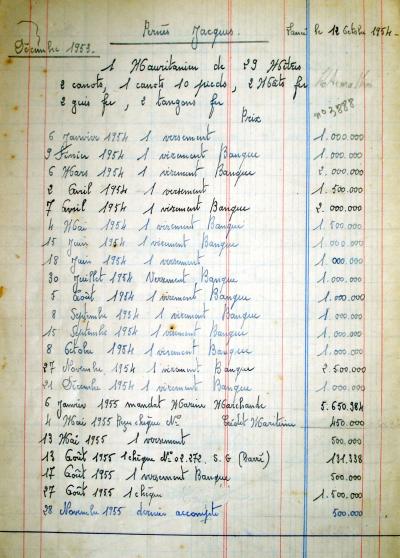 Pernès Jacques. Lancé le 12 Octobre 1954
Décembre 1953.
1 Mauritanien de 29 Mètres
2 canots, 1 canots 10 pieds, 2 Mâts fer
2 guis fer, 2 tangons fer
n° 3888
Prix
6 Janvier 1954 1 versement 1.000.000
9 Février 1954 1 virement Banque 1.000.000
6 Mars 1954 1 virement Banque 2.000.000
2 Avril 1954 1 versement 1.500.000
7 Avril 1954 1 virement Banque 2.000.000
4 Mai 1954 1 virement Banque 1.500.000
15 Juin 1954 1 virement Banque 1.000.000
18 Juin 1954 1 versement 1.000.000
30 Juillet 1954 Versement Banque 1.000.000
5 Août 1954 1 virement Banque 1.000.000
8 Septembre 1954 1 virement Banque 1.000.000
15 Septembre 1954 1 virement Banque 1.000.000
8 Octobre 1954 1 virement Banque 1.000.000
27 Novembre 1954 1 virement Banque 2.500.000
21 Décembre 1954 1 virement Banque 1.000.000
6 Janvier 1955 mandat Marine Marchande 5.650.384
4 Mai 1955 chèque N° Crédit Maritime 450.000
13 Mai 1955 1 versement 500.000
13 Août 1955 1 chèque N° 02.272. S.G (Barré) 131.338
17 Août 1955 1 versement Banque 500.000
27 Août 1955 1 chèque 1.500.000
28 Novembre 1955 dernier accompte 500.000